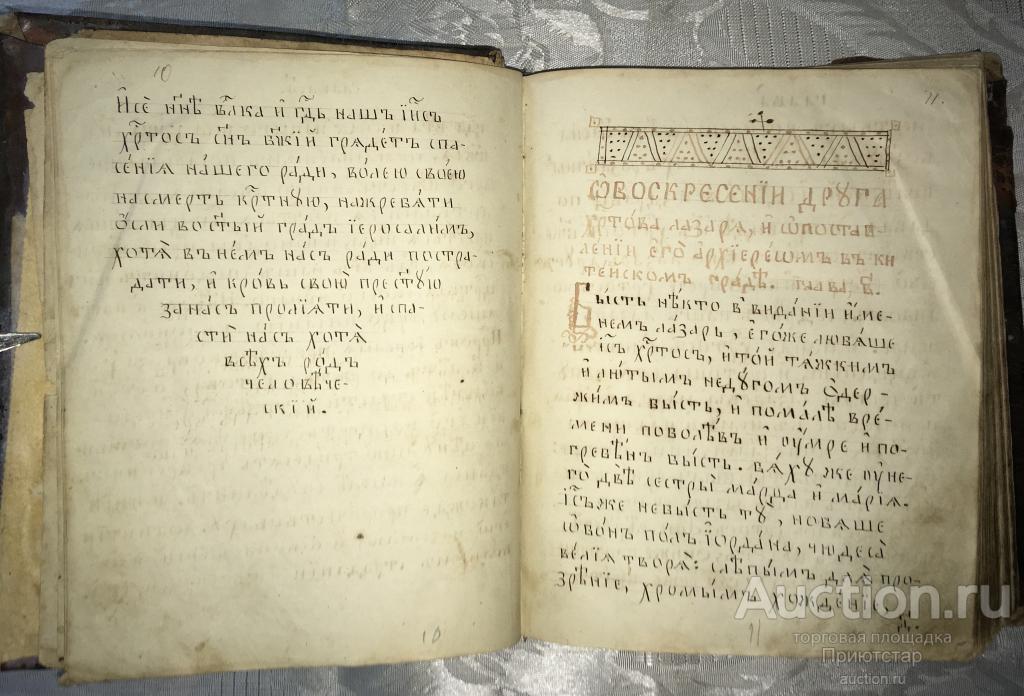 10
И҆ сѐ н҃нѣ вл҃ка и҆ гд҃ь нашъ і҆и҃съ
хрⷭ҇тосъ сн҃ъ бж҃кїй грѧдетъ спа-
се́нїѧ на́шегѡ ра́ди, во́лею свое́ю
на смерть крⷭ҇тную, на жребѧ́ти
о҆сли во ст҃ый гра́дъ і҆еросали́мъ,
хотѧ̀ въ не́мъ на́съ ра́ди постра-
да́ти, и҆ кро́вь свою̀ пречⷭ҇тую
за на́съ пролїѧ́ти, и҆ спа-
стѝ на́съ хотѧ̀
всѣ́хъ ро́дъ
человѣ́че-
скїй.
10
11.
Ѡ воскресенїи друга
хрⷭ҇това лазарѧ, и҆ ѡ҆ постав
ленїи є҆гѡ̀ а҆рхїере́омъ въ ки
те́йскомъ гра́дѣ. глава̀ в҃.
Бы́сть нѣ́кто в видані́и и҆ме-
не́мъ ла́зарь, є҆го́же любѧ́ше
і҆и҃съ хрⷭ҇тосъ, и҆ то́й тѧ́жкимъ
и҆ лю́тымъ неду́гомъ ѡ҆дер-
жи́мъ бы́сть, и҆ пома́лѣ вре́-
мени поболѣ́въ и҆ ᲂу҆́мре и҆ по-
гребе́нъ бы́сть. бѧ́ху же ᲂу҆ не-
гѡ̀ двѣ̀ сестры̀ ма́рѳа и҆ марі́ѧ.
І҆и҃съ же не бы́сть тꙋ̀, но бѧ́ше
ѡ҆б ѻ҆́нъ по́лъ і҆ѻрда́на, чюдеса̀
ве́лїѧ творѧ̀: слѣпы́мъ даѧ̀ про-
зрѣ́нїе, хромы́мъ хожде́нїе,
11
Auction.ru
торговая площадка
Приютстар
auction.ru